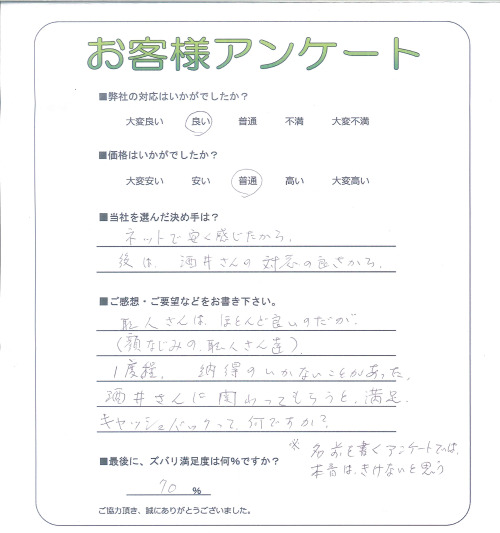 お客様アンケート
■弊社の対応はいかがでしたか？
大変良い 良い 普通 不満 大変不満
■価格はいかがでしたか？
大変安い 安い 普通 高い 大変高い
■当社を選んだ決め手は？
ネットで安く感じたから。
後は、酒井さんの対応の良さから。
■ご感想・ご要望などをお書き下さい。
職人さんは、ほとんど良いのだが、
(顔なじみの、職人さん達)
1度程、納得のいかないことがあった。
酒井さんに関わってもらうと、満足。
キャッシュバックって、何ですか？
※ 名前を書くアンケートでは、
本音は、きけないと思う
■最後に、ズバリ満足度は何%ですか？
70 %
ご協力頂き、誠にありがとうございました。